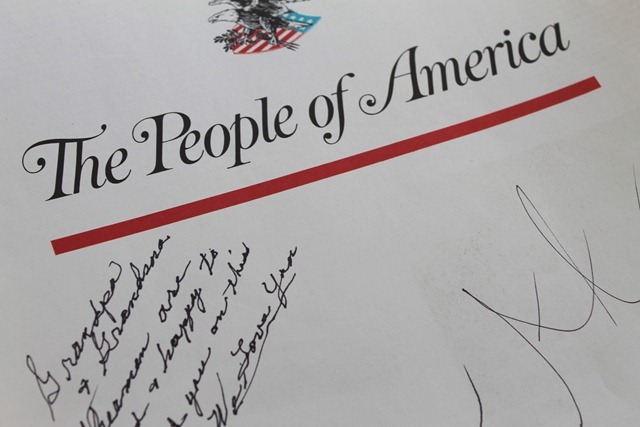 The People of America
Grandpa
& Grandma
are
& happy to
you on this
We Love You